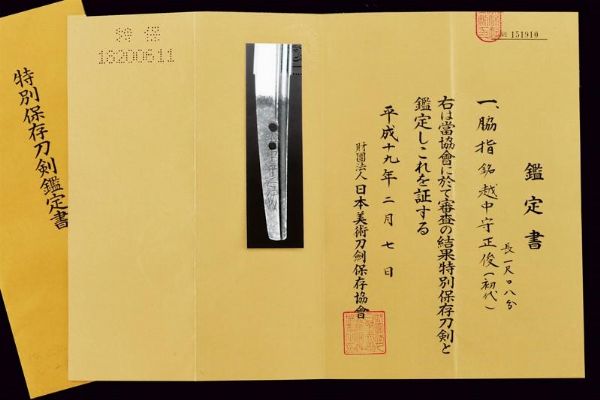 鑑定書
一、脇指 銘 越中守正俊(初代)
長一尺〇八分
右は當協會に於て審査の結果特別保存刀剣と
鑑定しこれを証する
平成十九年二月七日
財團法人日本美術刀劍保存協會
151910
特保
18200611
特別保存刀剣鑑定書